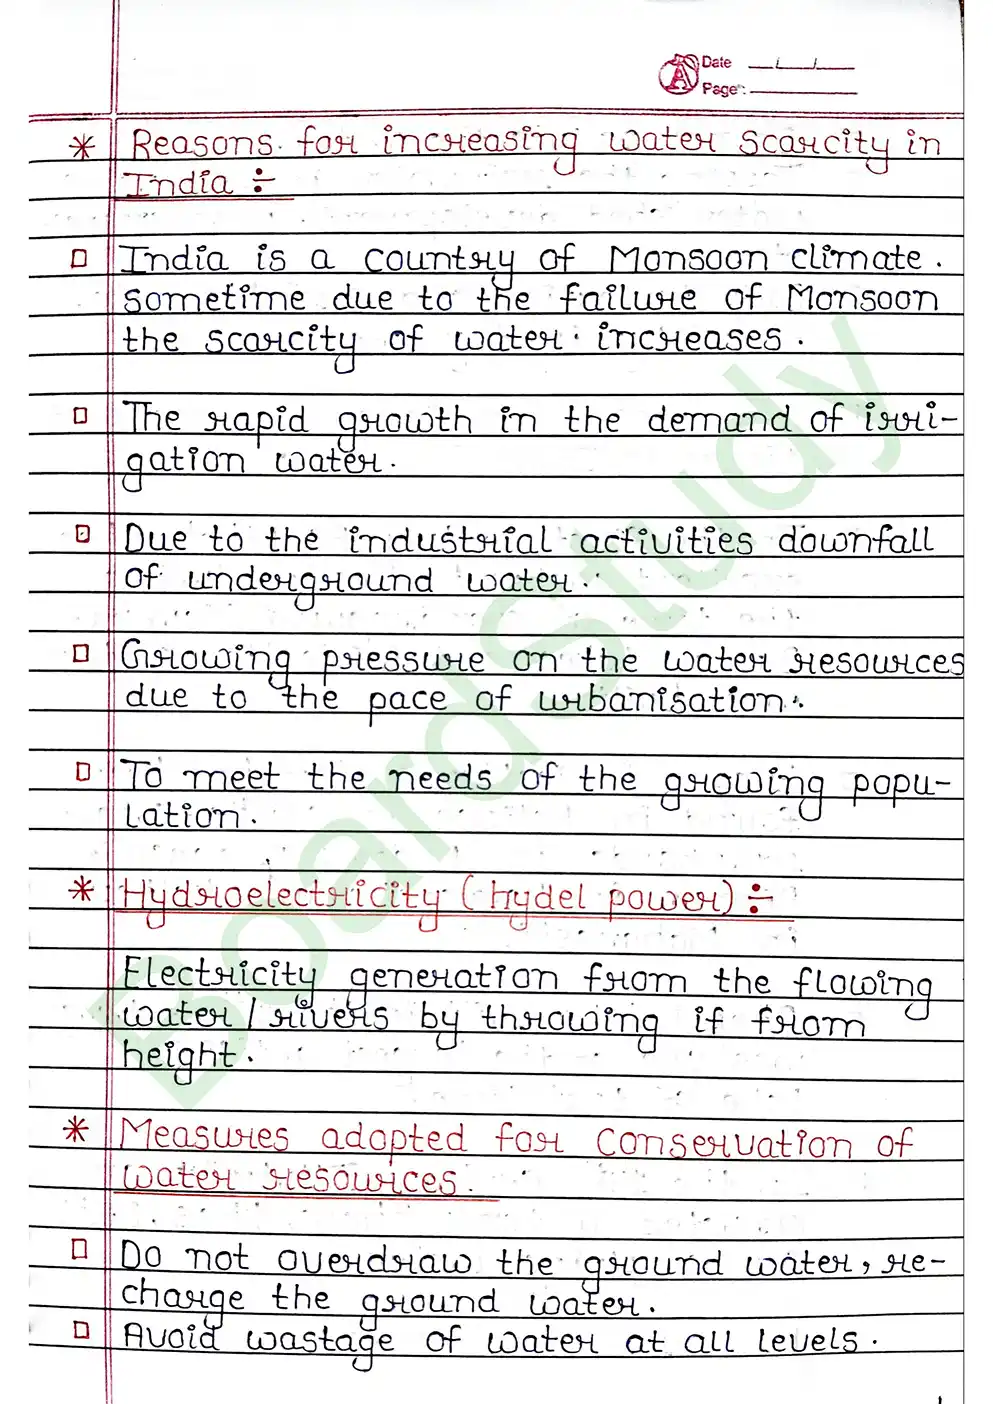 Date __/__/__
Page: ______
* Reasons for increasing water scarcity in
India ÷
□ India is a country of Monsoon climate.
sometime due to the failure of Monsoon
the scarcity of water increases.
□ The rapid growth in the demand of irri-
gation water.
□ Due to the industrial activities downfall
of underground water.
□ Growing pressure on the water resources
due to the pace of urbanisation.
□ To meet the needs of the growing popu-
lation.
* Hydroelectricity (hydel power) ÷
Electricity generation from the flowing
water/rivers by throwing if from
height.
* Measures adopted for conservation of
water resources.
□ Do not overdraw the ground water, re-
charge the ground water.
□ Avoid wastage of water at all levels.
BoardStudy